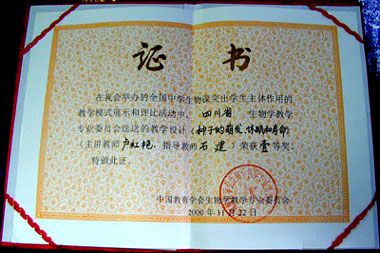 证 书
在我会举办的全国中学生物课突出学生主体作用的
教学模式展示和评比活动中，四川省 生物学教学
专业委员会选送的教学设计（种子的萌发、休眠和寿命）
（主讲教师卢红艳，指导教师石建）荣获壹等奖。
特颁此证。
中国教育学会生物学教学专业委员会
2000 年 11 月 22 日